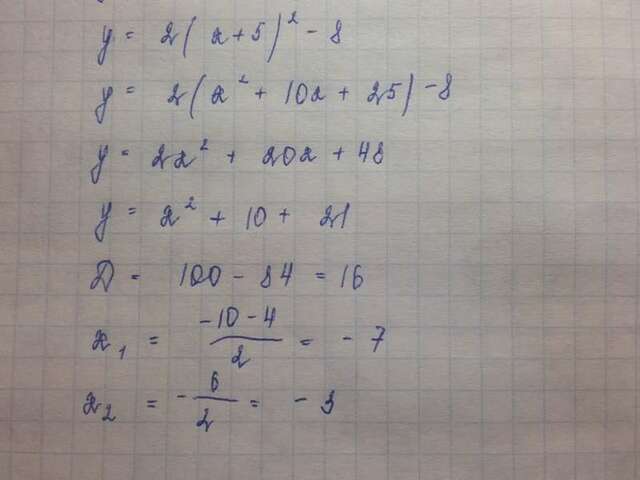 y = 2(x+5)² - 8
y = 2(x² + 10x + 25) - 8
y = 2x² + 20x + 48
y = x² + 10 + 21
D = 100 - 84 = 16
x₁ = -10-4/2 = -7
x₂ = -6/2 = -3